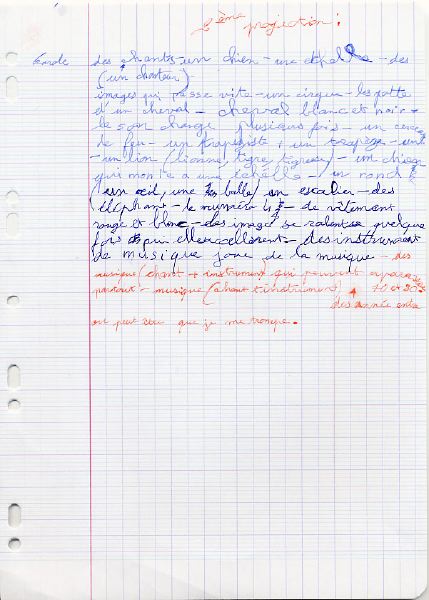 2ème projection :
des chants - un chien - une échelle - des
(un chanteur)
images qui passe vite - un cirque - les patte
d'un cheval - cheval blanc et noir -
le son change plusieurs fois - un cerceau
de feu - un trapéziste, un trapèze - une
- un lion (lionne, tigre, tigresse) - un chien
qui monte a une échelle - un rond
(un œil, une balle) un escalier - des
éléphant - le numéro - de vêtement
rouge et blanc - des image se ralentisse quelque
fois puis elle accellèrent - des instrument
de musique joue de la musique - des
musique (chant + instrument) qui peuvent
partout - musique (chant + instrument) 70 et 90
des année entre
ou peut être que je me trompe.